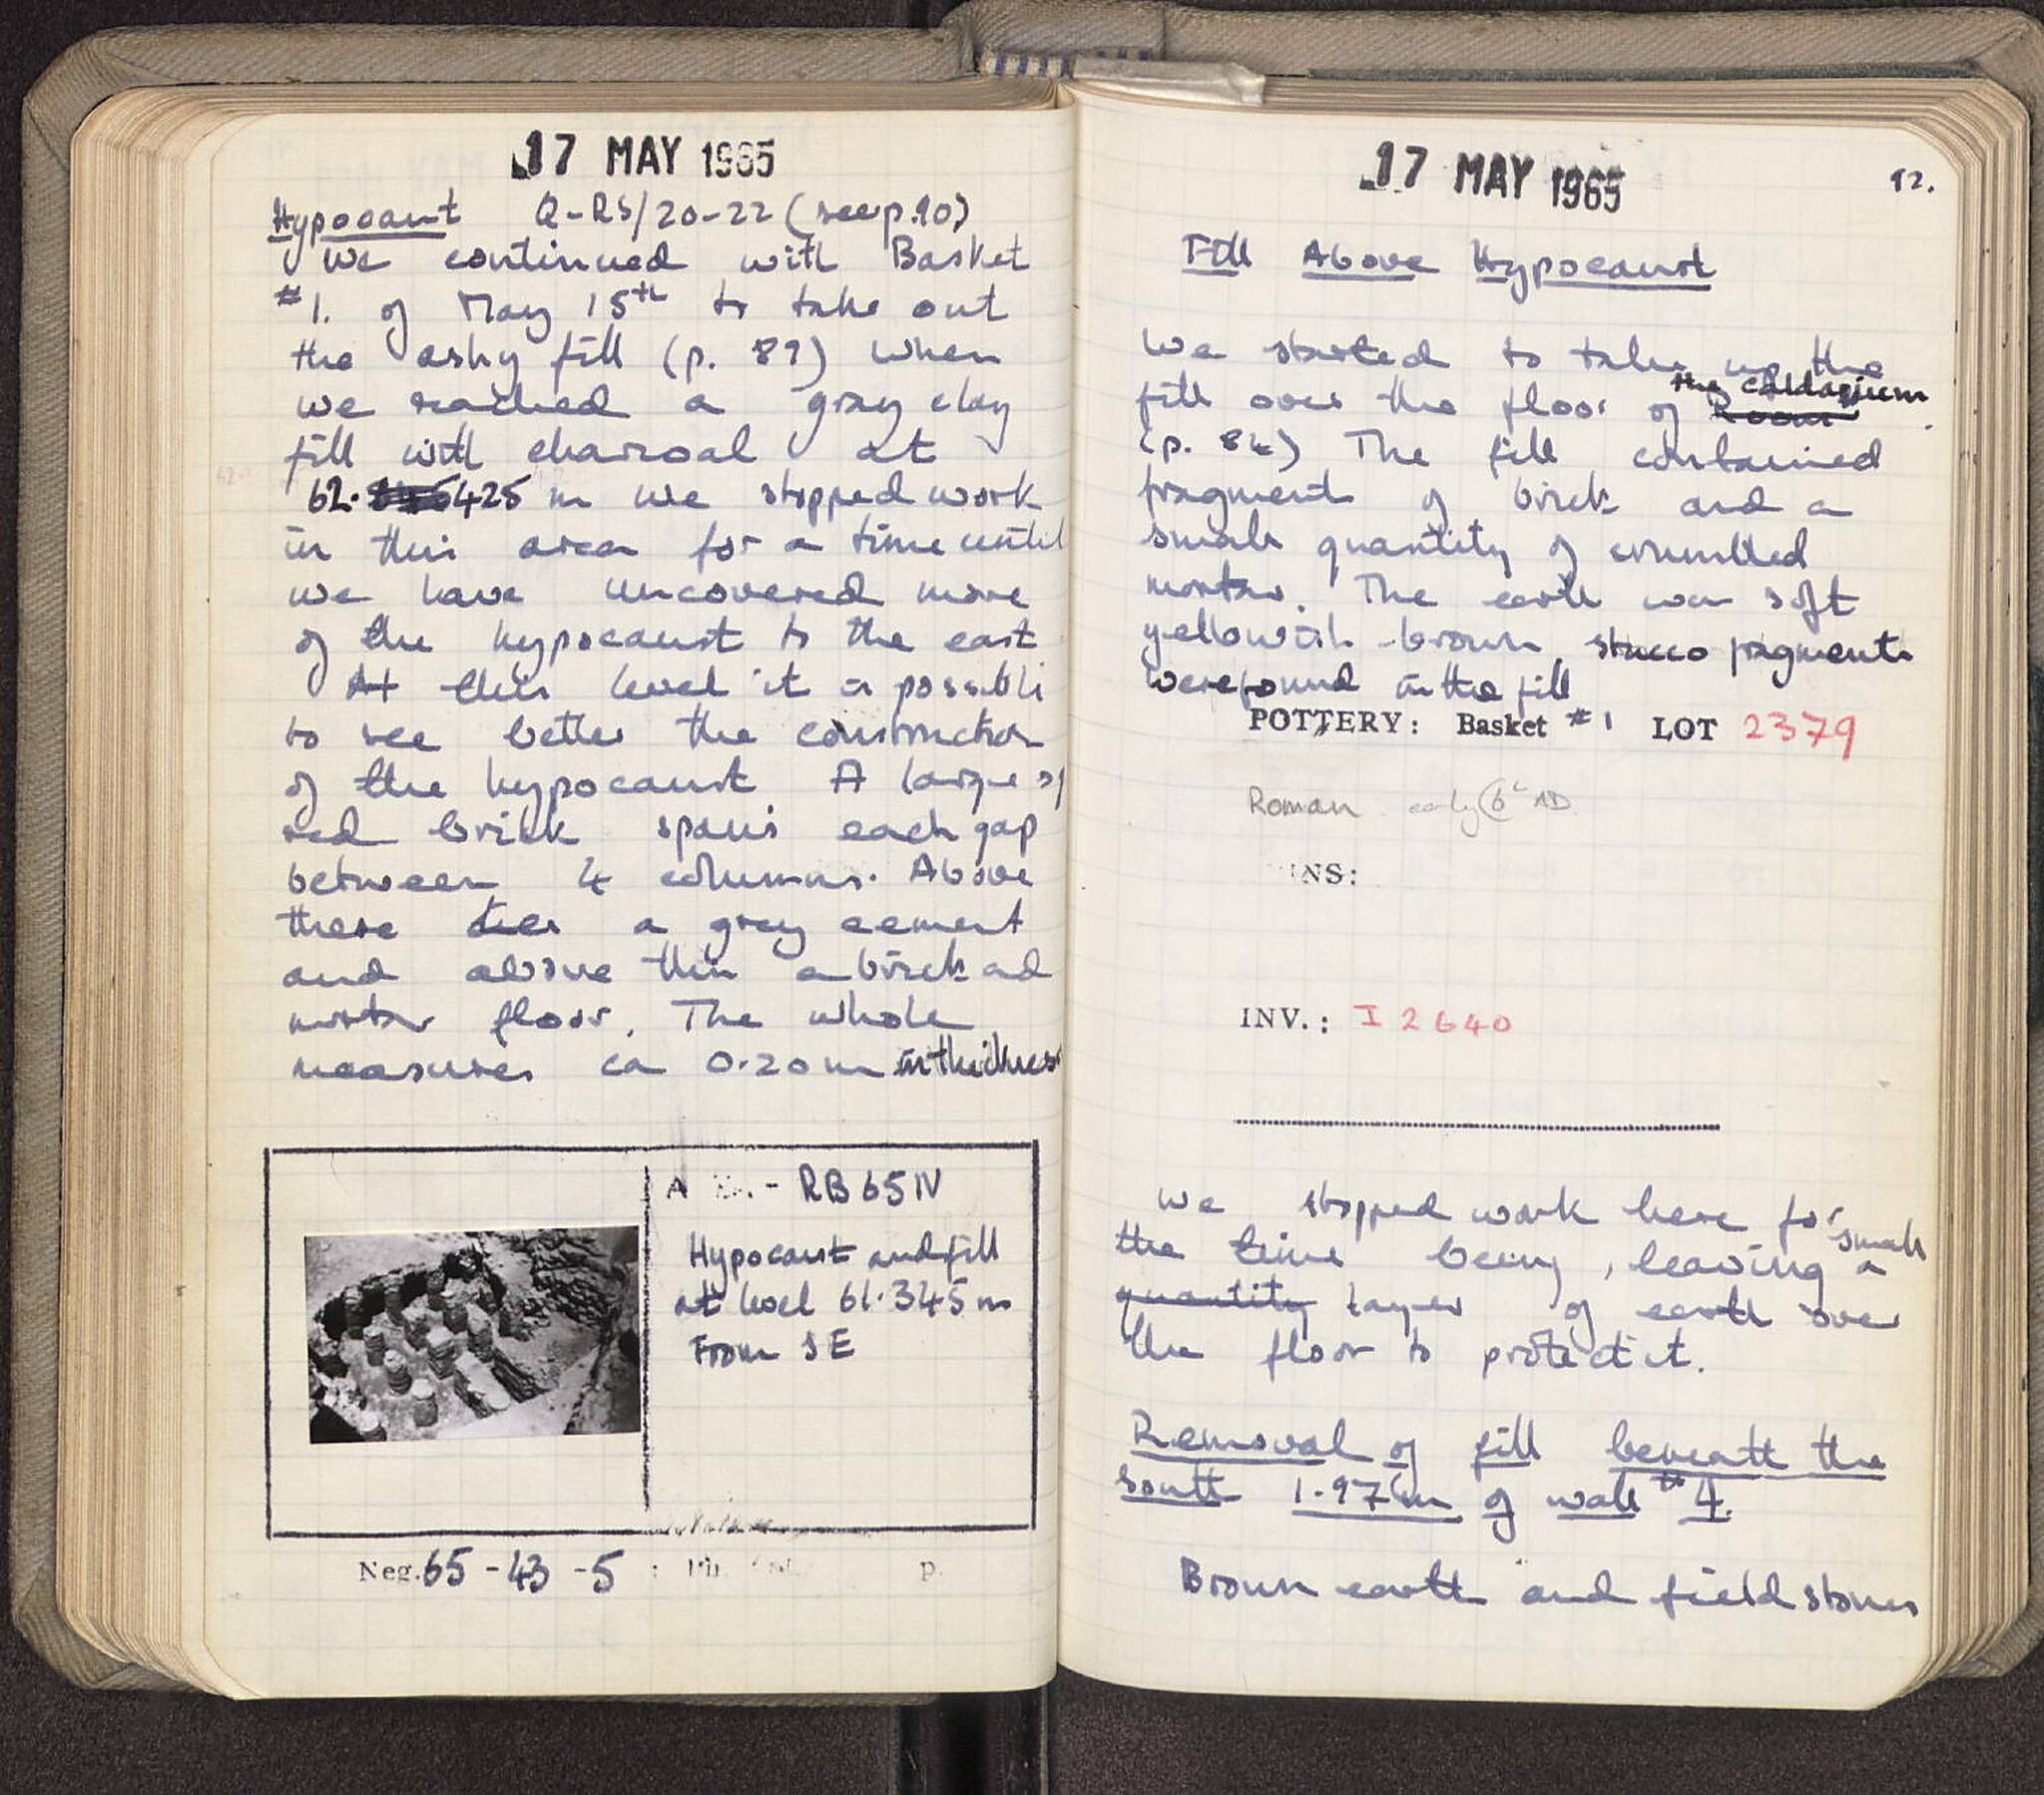 17 MAY 1965
Hypocaust Q-RS/20-22 (see p. 90)
We continued with Basket
#1. of May 15th to take out
the ashy fill (p. 89) when
we reached a gray clay
fill with charcoal at
62. 425 m we stopped work
in this area for a time until
we have uncovered more
of the hypocaust to the east
At this level it is possible
to see better the construction
of the hypocaust. A large sq
red brick spans each gap
between 4 columns. Above
these lies a grey cement
and above this a brick and
mortar floor. The whole
measures ca 0.20 m in thickness
A - RB 65 IV
Hypocaust and fill
at level 61.345 m
From SE
Neg. 65 - 43 - 5 : p.
17 MAY 1965
92.
Fill Above Hypocaust
We started to take up the
fill over the floor of Room the caldarium
(p. 84) The fill contained
fragments of brick and a
small quantity of crumbled
mortar. The earth was soft
yellowish-brown. stucco fragments
were found in the fill
POTTERY: Basket #1 LOT 2379
Roman early 6c AD
INS:
INV.: I 2640
We stopped work here for
the time being, leaving a small
quantity layer of earth over
the floor to protect it.
Removal of fill beneath the
south 1.97m of wall #4.
Brown earth and field stones